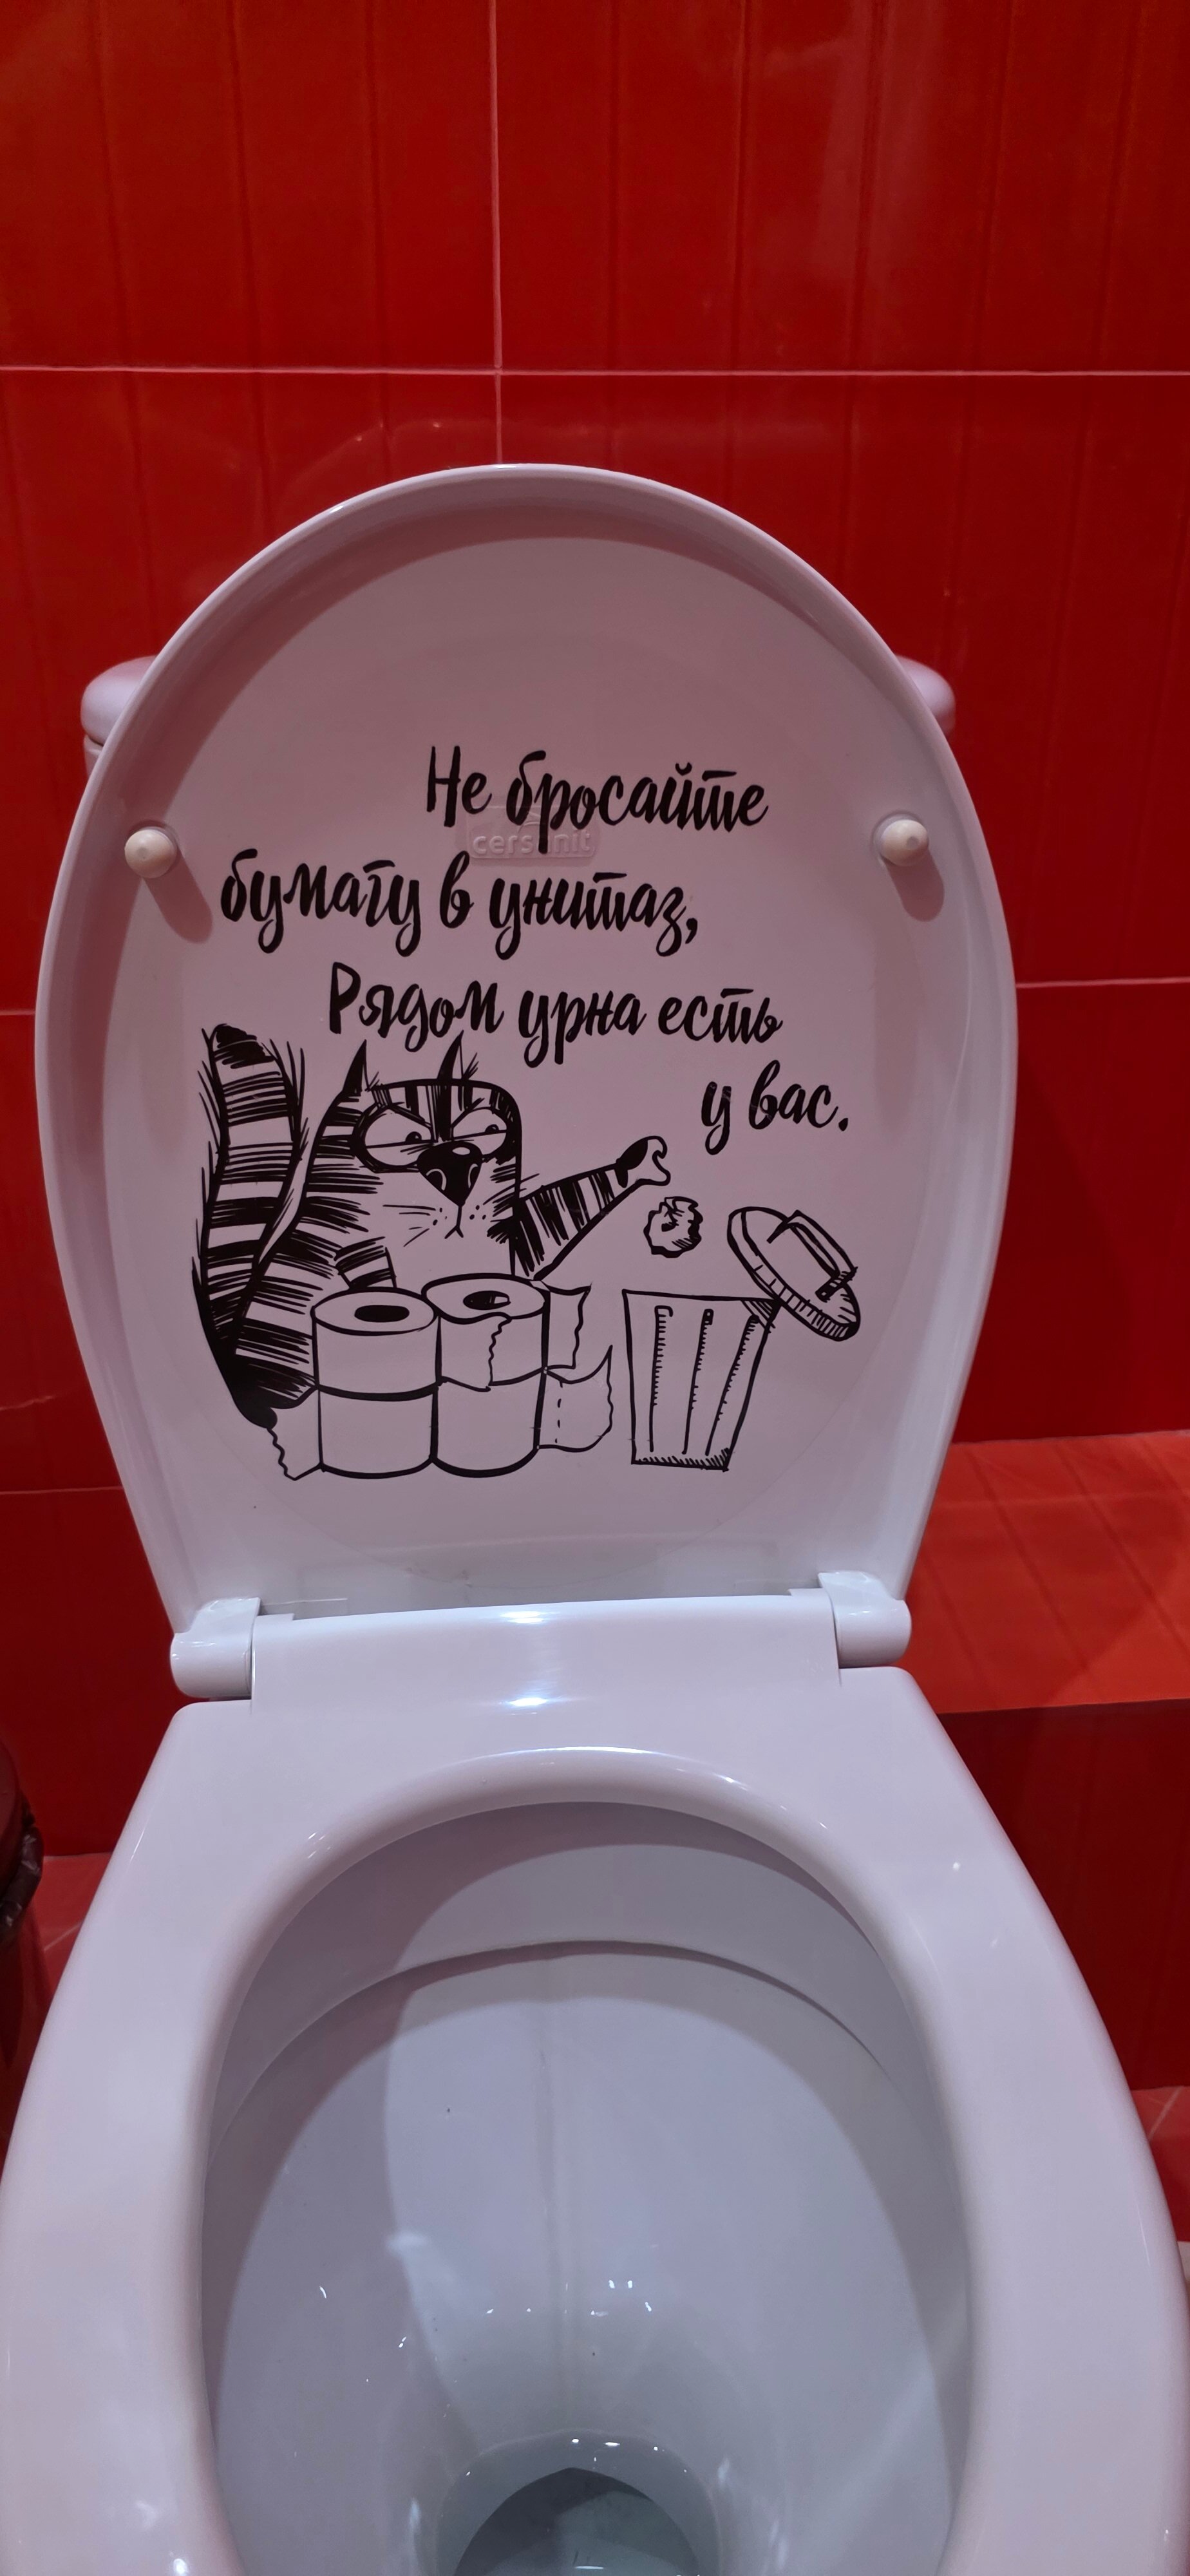 Не бросайте
cersanit
бумагу в унитаз,
Рядом урна есть
у вас.